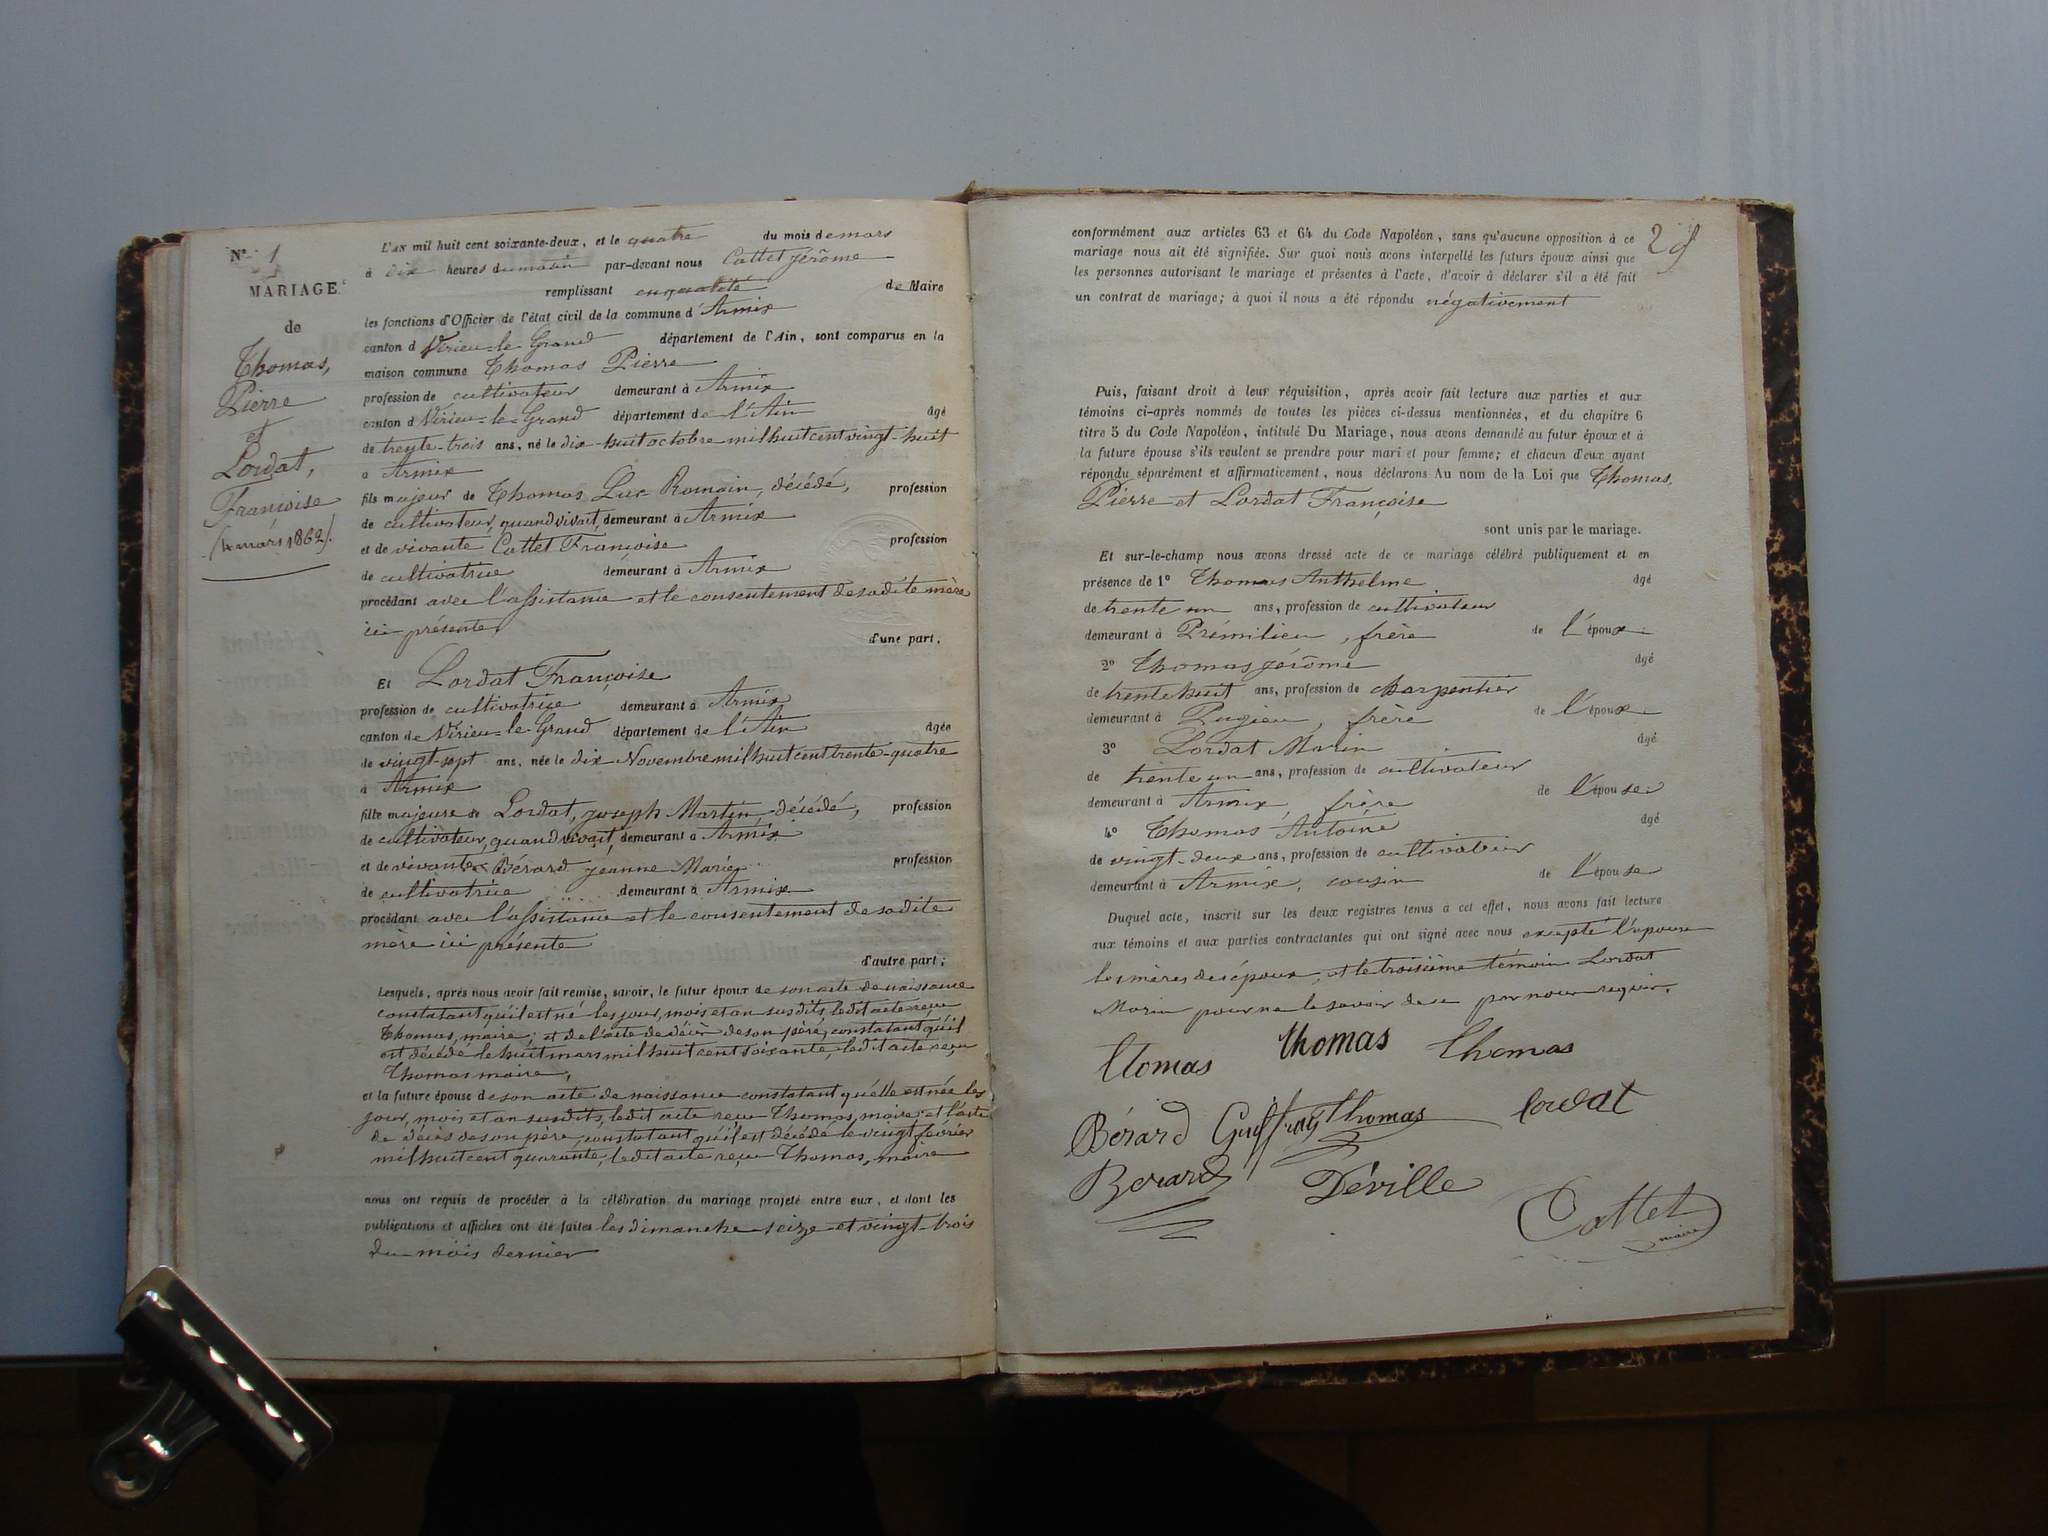 N° 1
MARIAGE
de
Thomas,
Pierre
et
Lordat,
Françoise
(4 mars 1862).
L'AN mil huit cent soixante-deux, et le quatre du mois de mars
à dix heures du matin par-devant nous Cattet Jérôme
remplissant en qualité de Maire
les fonctions d'Officier de l'état civil de la commune d'Armix
canton d Virieu-le-Grand département de l'Ain, sont comparus en la
maison commune Thomas Pierre
profession de cultivateur demeurant à Armix
canton d Virieu-le-Grand département de l'Ain âgé
de trente-trois ans, né le dix-huit octobre mil huit cent vingt-huit
à Armix
fils majeur de Thomas Luc Romain, décédé, profession
de cultivateur, quand vivait, demeurant à Armix
et de vivante Cattet Françoise profession
de cultivatrice demeurant à Armix
procédant avec l'assistance et le consentement de sadite mère
ici présente, d'une part.
Et Lordat Françoise
profession de cultivatrice demeurant à Armix
canton de Virieu-le-Grand département de l'Ain âgée
de vingt-sept ans, née le dix Novembre mil huit cent trente-quatre
à Armix
fille majeure de Lordat, Joseph Martin, décédé, profession
de cultivateur, quand vivait, demeurant à Armix
et de vivante Bérard Jeanne Marie profession
de cultivatrice demeurant à Armix
procédant avec l'assistance et le consentement de sadite
mère ici présente
d'autre part;
Lesquels, après nous avoir fait remise, savoir, le futur époux de son acte de naissance
constatant qu'il est né les jour, mois et an susdits, ledit acte reçu
Thomas, maire; et de l'acte de décès de son père, constatant qu'il
est décédé le huit mars mil huit cent soixante, ledit acte reçu
Thomas maire,
et la future épouse de son acte de naissance constatant qu'elle est née les
jour, mois et an susdits, ledit acte reçu Thomas, maire; et l'acte
de décès de son père, constatant qu'il est décédé le vingt février
mil huit cent quarante, ledit acte reçu Thomas, maire
nous ont requis de procéder à la célébration du mariage projeté entre eux, et dont les
publications et affiches ont été faites les dimanche seize et vingt-trois
du mois dernier
29
conformément aux articles 63 et 64 du Code Napoléon, sans qu'aucune opposition à ce
mariage nous ait été signifiée. Sur quoi nous avons interpellé les futurs époux ainsi que
les personnes autorisant le mariage et présentes à l'acte, d'avoir à déclarer s'il a été fait
un contrat de mariage; à quoi il nous a été répondu négativement
Puis, faisant droit à leur réquisition, après avoir fait lecture aux parties et aux
témoins ci-après nommés de toutes les pièces ci-dessus mentionnées, et du chapitre 6
titre 5 du Code Napoléon, intitulé Du Mariage, nous avons demandé au futur époux et à
la future épouse s'ils veulent se prendre pour mari et pour femme; et chacun d'eux ayant
répondu séparément et affirmativement, nous déclarons Au nom de la Loi que Thomas,
Pierre et Lordat Françoise
sont unis par le mariage.
Et sur-le-champ nous avons dressé acte de ce mariage célébré publiquement et en
présence de 1° Thomas Anthelme âgé
de trente un ans, profession de cultivateur
demeurant à Prémilieu, frère de l'époux
2° Thomas Jérôme âgé
de trente huit ans, profession de charpentier
demeurant à Pugieu, frère de l'époux
3° Lordat Marin âgé
de trente un ans, profession de cultivateur
demeurant à Armix, frère de l'épouse
4° Thomas Antoine âgé
de vingt-deux ans, profession de cultivateur
demeurant à Armix, cousin de l'épouse
Duquel acte, inscrit sur les deux registres tenus à cet effet, nous avons fait lecture
aux témoins et aux parties contractantes qui ont signé avec nous excepté l'épouse
les mères des époux, et le troisième témoin Lordat
Marin pour ne le savoir de ce par nous requis.
thomas thomas thomas
Bérard Guffray Thomas Lordat
Berard Déville
Cattet
maire